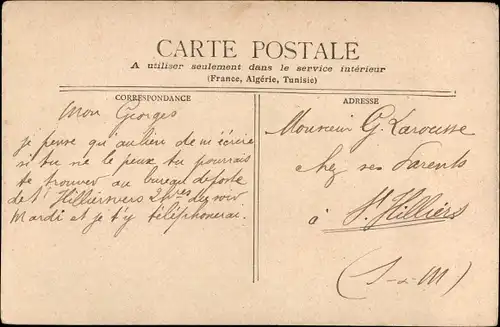 CARTE POSTALE
A utiliser seulement dans le service intérieur
(France, Algérie, Tunisie)
CORRESPONDANCE
Mon Georges
je pense qu'au lieu de m'écrire
si tu ne le peux tu pourrais
te trouver au bureau de poste
de St Hilliers vers 2 hres
Mardi et je t'y téléphonerai.
ADRESSE
Monsieur G. Larousse
chez ses Parents
à St Hilliers
(S-et-M)